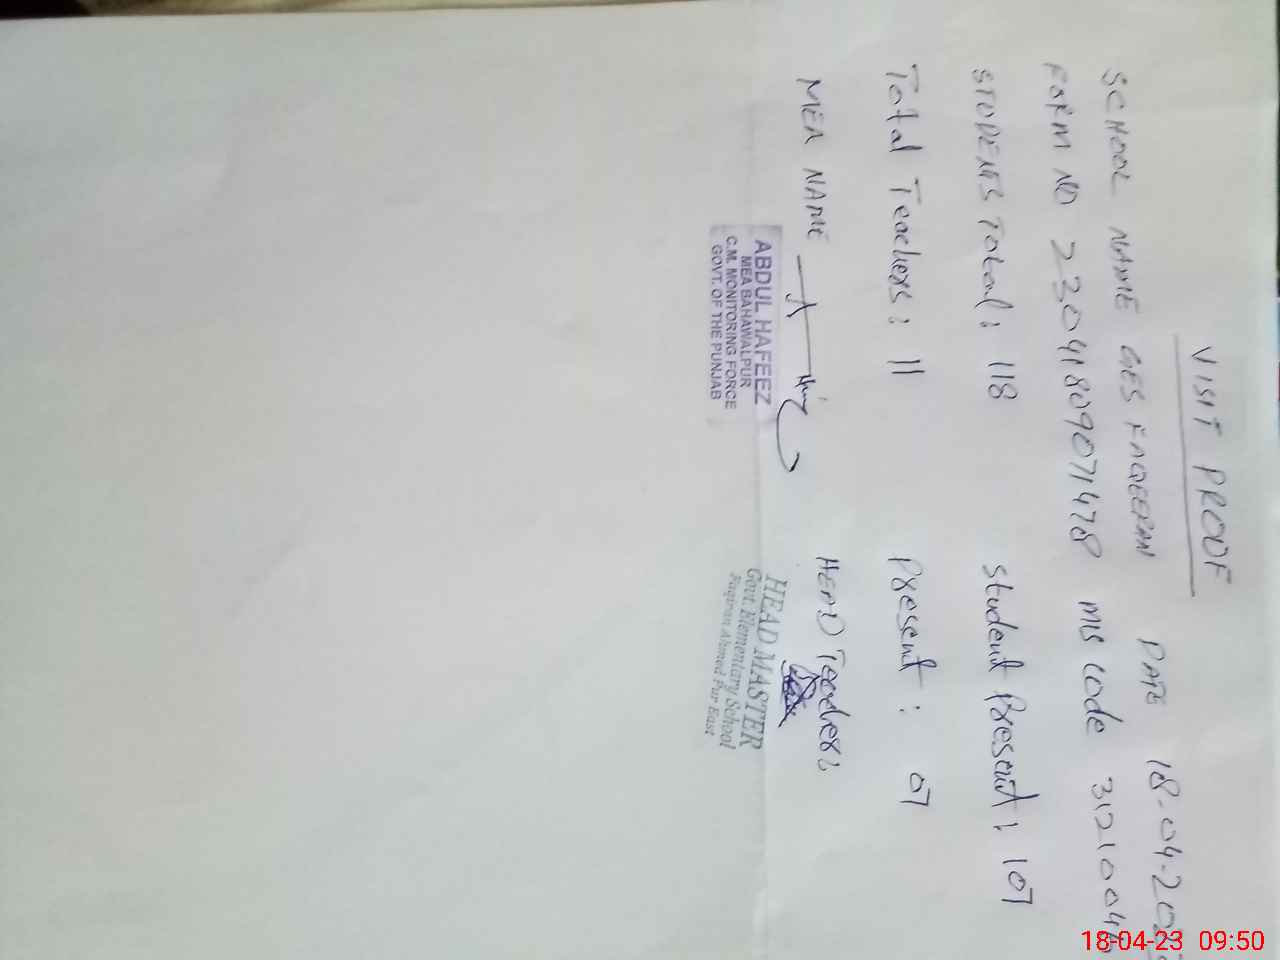 VISIT PROOF
SCHOOL NAME GES FAQEERAN DATE 18-04-202
FORM NO 23041809071478 MIS CODE 3121004
STUDENTS Total: 118 Student Present: 107
Total Teachers: 11 Present: 07
MEA NAME HEAD Teacher:
ABDUL HAFEEZ
MEA BAHAWALPUR
C.M. MONITORING FORCE
GOVT. OF THE PUNJAB
HEAD MASTER
Govt. Elementary School
Faqiran Ahmed Pur East
18-04-23 09:50